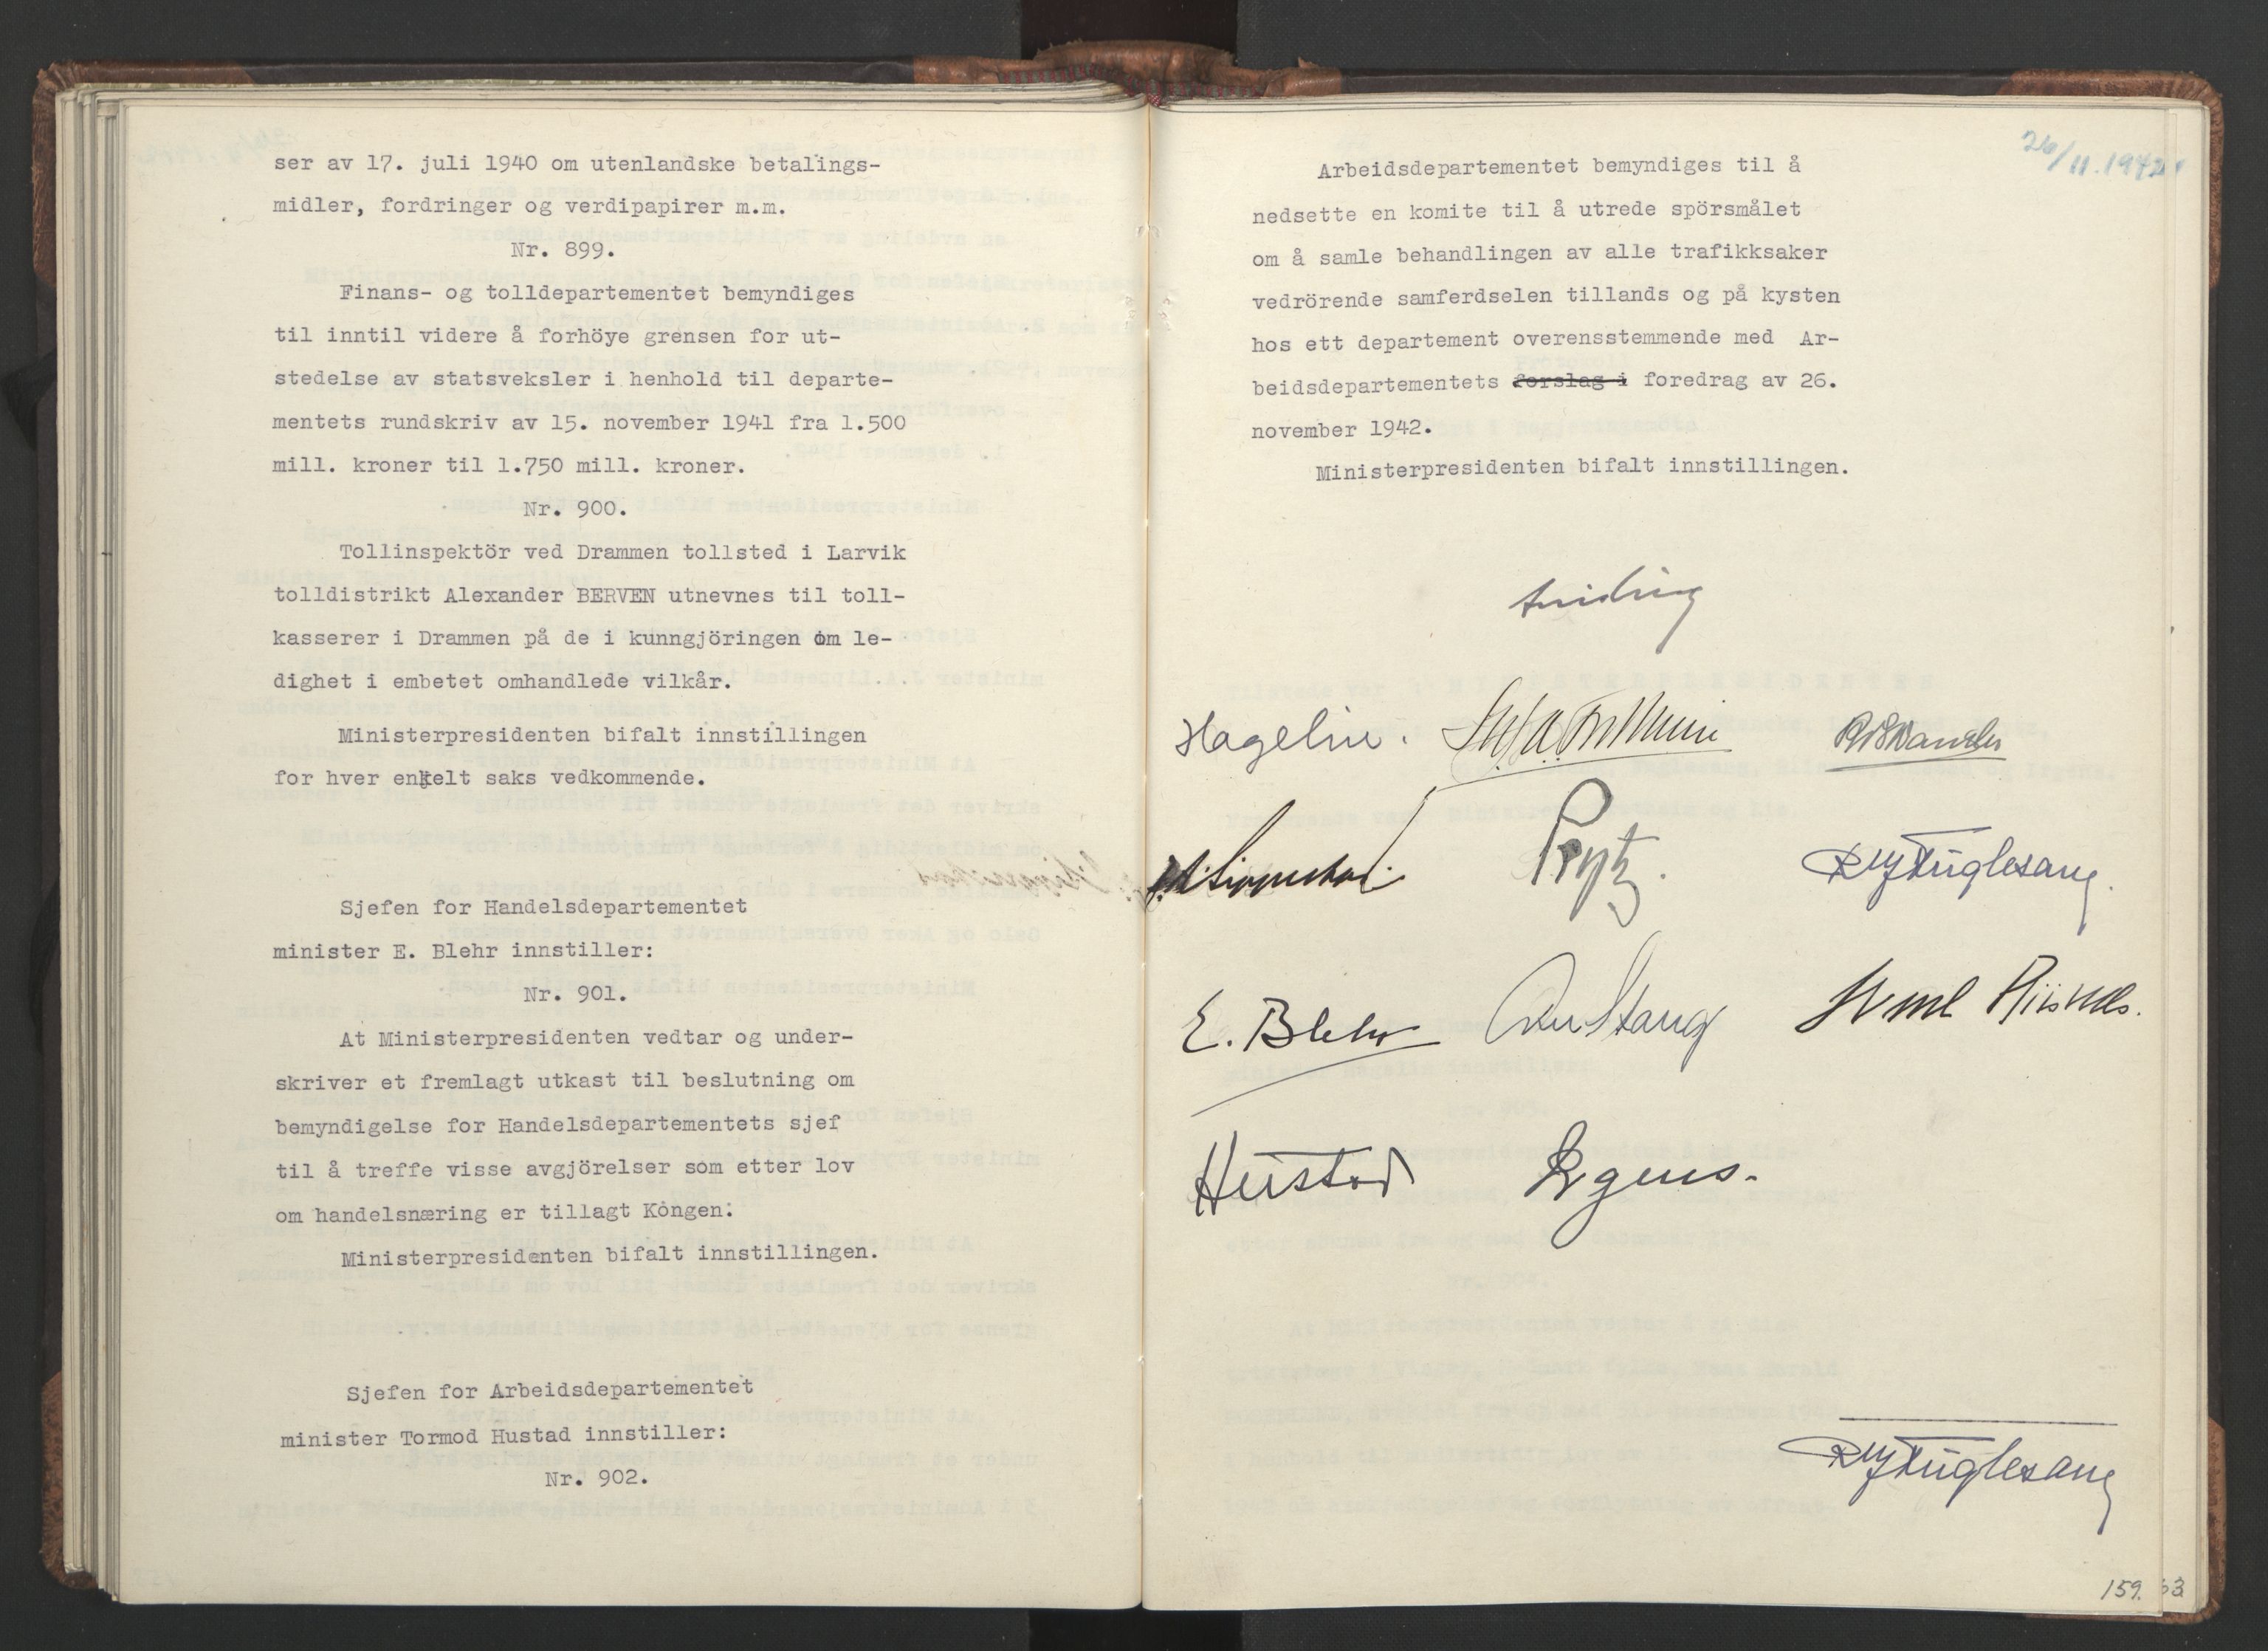 ser av 17. juli 1940 om utenlandske betalings-
midler, fordringer og verdipapirer m.m.
Nr. 899.
Finans- og tolldepartementet bemyndiges
til inntil videre å forhöye grensen for ut-
stedelse av statsveksler i henhold til departe-
mentets rundskriv av 15. november 1941 fra 1.500
mill. kroner til 1.750 mill. kroner.
Nr. 900.
Tollinspektör ved Drammen tollsted i Larvik
tolldistrikt Alexander BERVEN utnevnes til toll-
kasserer i Drammen på de i kunngjöringen om le-
dighet i embetet omhandlede vilkår.
Ministerpresidenten bifalt innstillingen
for hver enkelt saks vedkommende.
Sjefen for Handelsdepartementet
minister E. Blehr innstiller:
Nr. 901.
At Ministerpresidenten vedtar og under-
skriver et fremlagt utkast til beslutning om
bemyndigelse for Handelsdepartementets sjef
til å treffe visse avgjörelser som etter lov
om handelsnæring er tillagt Kongen.
Ministerpresidenten bifalt innstillingen.
Sjefen for Arbeidsdepartementet
minister Tormod Hustad innstiller:
Nr. 902.
26/11.1942
Arbeidsdepartementet bemyndiges til å
nedsette en komite til å utrede spörsmålet
om å samle behandlingen av alle trafikksaker
vedrörende samferdselen tillands og på kysten
hos ett departement overensstemmende med Ar-
beidsdepartementets forslag i foredrag av 26.
november 1942.
Ministerpresidenten bifalt innstillingen.
Hagelin.
Prytz.
R J Fuglesang.
E. Blehr
Stang
Riisnæs.
Hustad
Irgens.
R J Fuglesang
159.